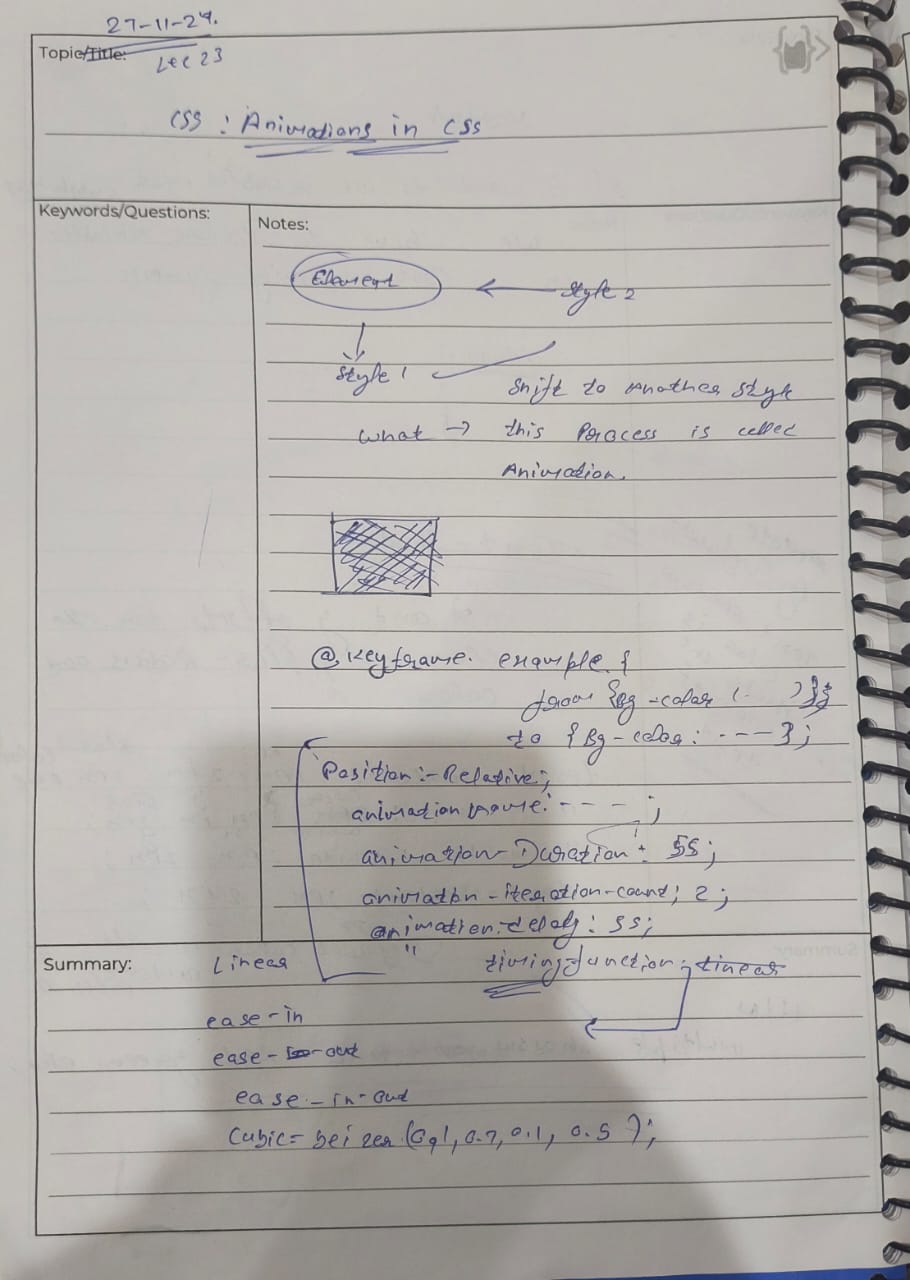 27-11-24.
Topic/Title:
Lec 23
CSS : Animations in CSS
Keywords/Questions:
Notes:
Element ← Style 2
↓
Style 1
Shift to another style
What → this Process is called
Animation.
@ Keyframe. example. {
from {Bg-color ( - - )}}
to { Bg-color : - - - } ;
Position :- Relative;
animation name: - - - - ;
animation-Duration : 5s ;
animation - iteration-count; 2 ;
animation.delay : 5s;
" timing function: linear
Summary:
Linear
ease-in
ease- -out
ease - in-out
Cubic= beizer (0.1, 0.7, 0.1, 0.5 );